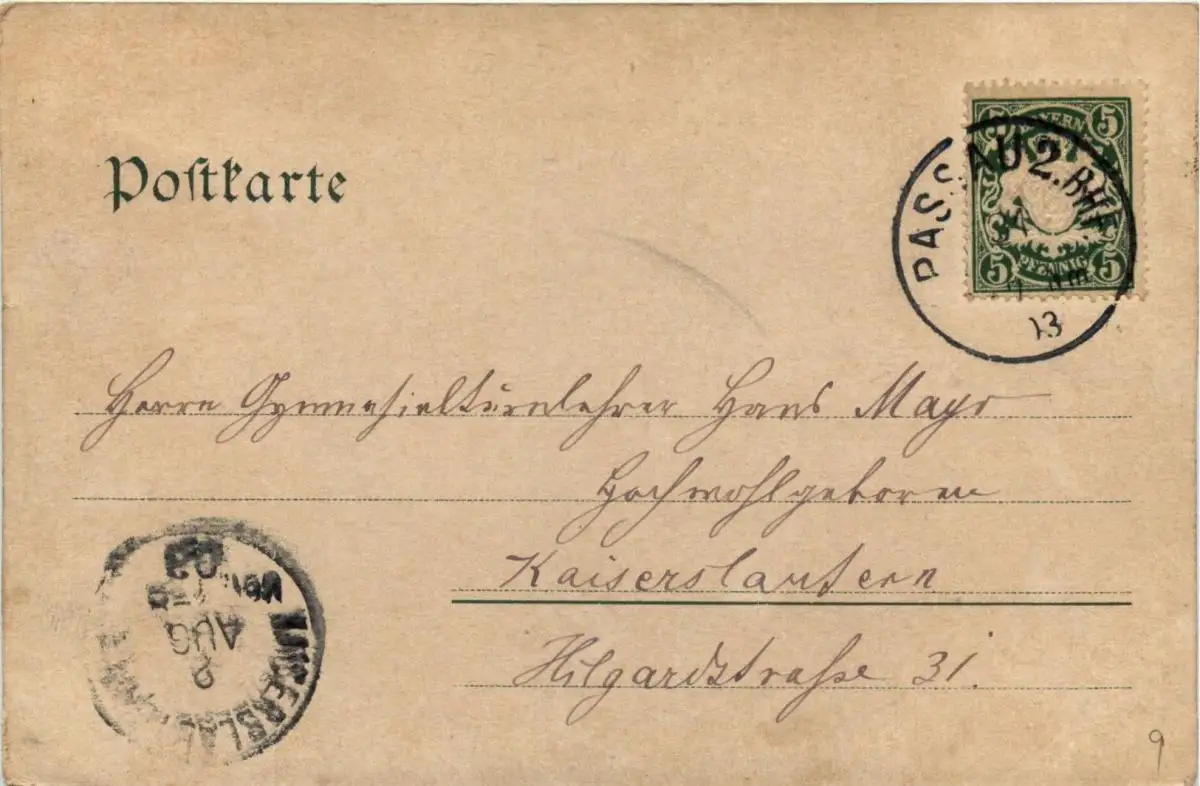 Postkarte
5 BAYERN 5
5 PFENNIG 5
PASSAU 2. BHF
13
Herrn Gymnasialturnlehrer Hans Mayr
Hochwohlgeboren
Kaiserslautern
Hilgardstraße 31.
KAISERSLAUTERN
8
AUG
03
9